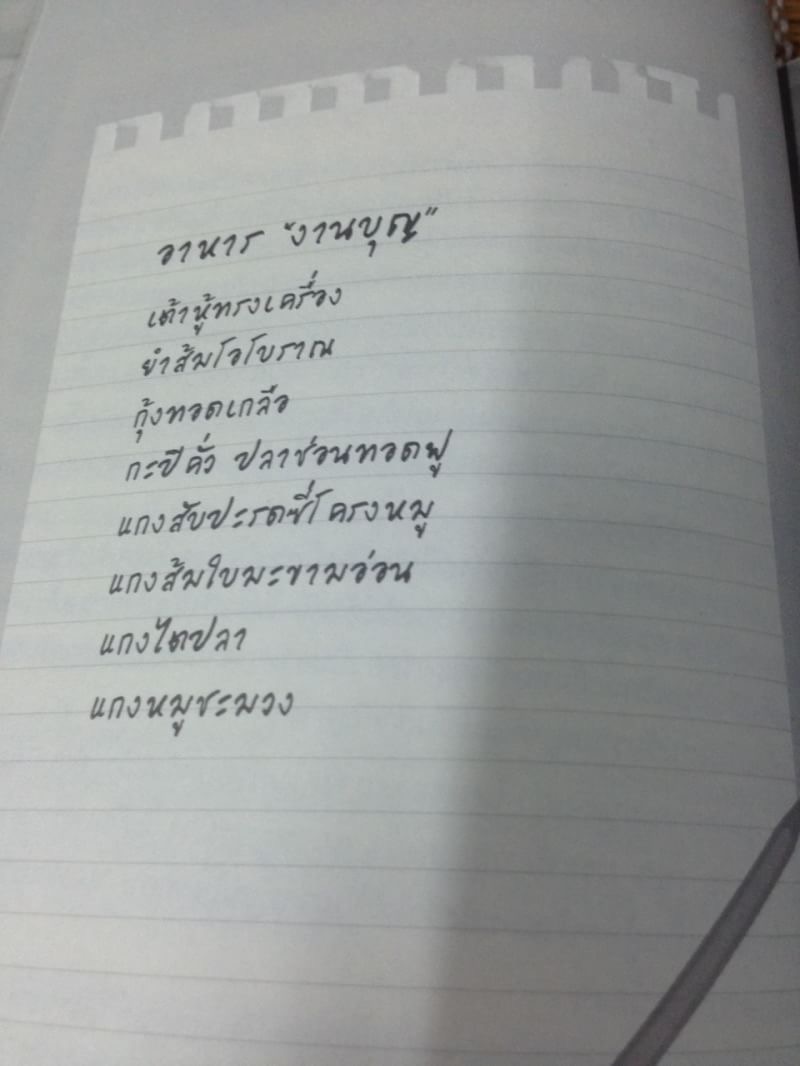 อาหาร "งานบุญ"
เต้าหู้ทรงเครื่อง
ยำส้มโอโบราณ
กุ้งทอดเกลือ
กะปิคั่ว ปลาช่อนทอดฟู
แกงสับปะรดซี่โครงหมู
แกงส้มใบมะขามอ่อน
แกงไตปลา
แกงหมูชะมวง